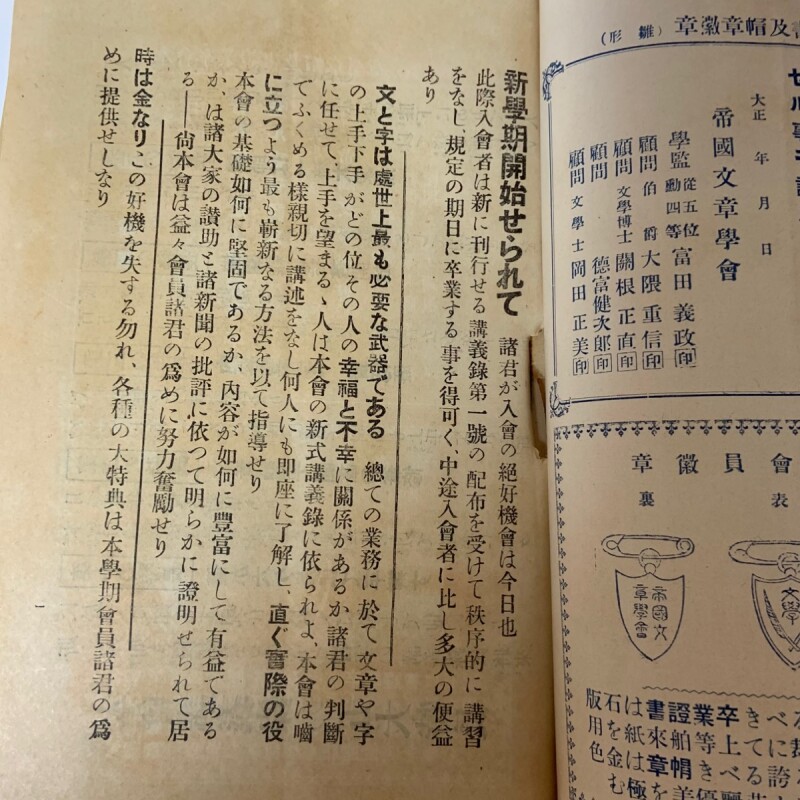 書及帽章徽章（雛形）
大正　年　月　日
帝國文章學會
學監 從五位勳四等 富田義政 印
顧問 伯爵 大隈重信 印
顧問 文學博士 關根正直 印
顧問 德富健次郎 印
顧問 文學士 岡田正美 印
會員徽章
表
裏
文學
帝國文章學會
べきて上べきべ
卒業證書
等る
舶來
帽章
は紙は
石を金
版用色
新學期開始せられて　諸君が入會の絕好機會は今日也
此際入會者は新に刊行せる講義錄第一號の配布を受けて秩序的に講習
をなし、規定の期日に卒業する事を得可く、中途入會者に比し多大の便益
あり
文と字は處世上最も必要な武器である　總ての業務に於て文章や字
の上手下手がどの位その人の幸福と不幸に關係があるか諸君の判斷
に任せて、上手を望まるゝ人は本會の新式講義錄に依られよ、本會は嚙
てふくめる樣親切に講述をなし何人にも即座に了解し、直ぐ實際の役
に立つよう最も嶄新なる方法を以て指導せり
本會の基礎如何に堅固であるか、內容が如何に豐富にして有益である
か、は諸大家の讚助と諸新聞の批評に依つて明らかに證明せられて居
る――尙本會は益々會員諸君の爲めに努力奮勵せり
時は金なりこの好機を失する勿れ、各種の大特典は本學期會員諸君の爲
めに提供せしなり